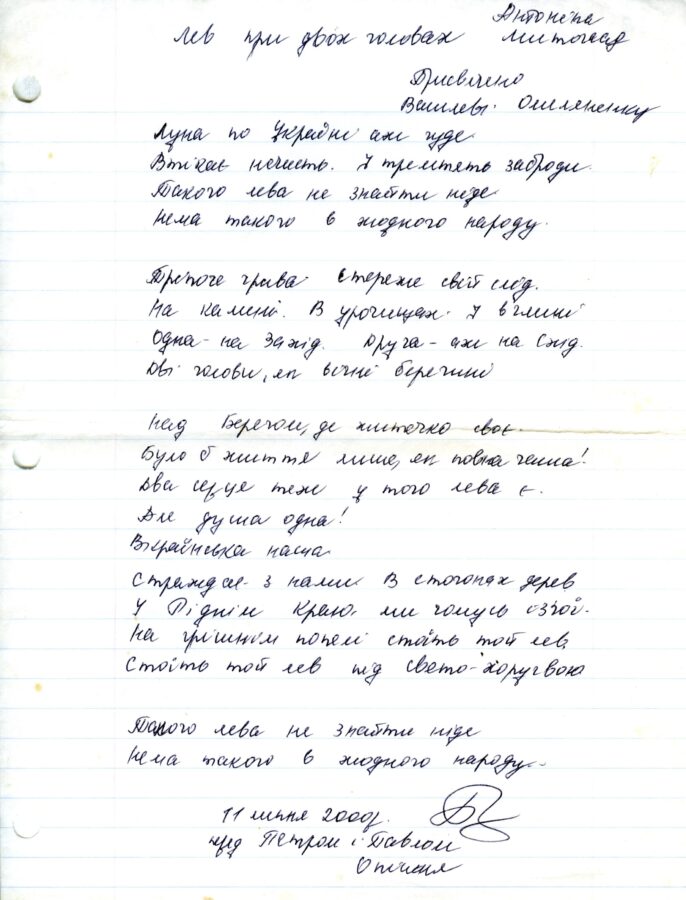 Антоніна
Лев при двох головах Листопад
Присвячено
Василеві Омеляненку
Луна по Україні аж гуде
Втікає нечисть. І тремтять заброди.
Такого лева не знайти ніде
Нема такого в жодного народу.
Тріпоче грива стереже свій слід.
На камені. В урочищах. І в глині
Одна - на Захід. Друга - аж на Схід.
Дві голови, як вічні берегині
Над Берегом, де житечко своє.
Було б життя лише, як повна чаша!
Два серця теж у того лева є.
Але душа одна!
Вкраїнська наша
Страждає з нами. В стогонах дерев
У Ріднім Краю, ми чомусь ізгої.
На грішнім попелі стоїть той лев,
Стоїть той лев під свято-хоругвою
Такого лева не знайти ніде
Нема такого в жодного народу..
11 липня 2000р.
перед Петром і Павлом
Опішня